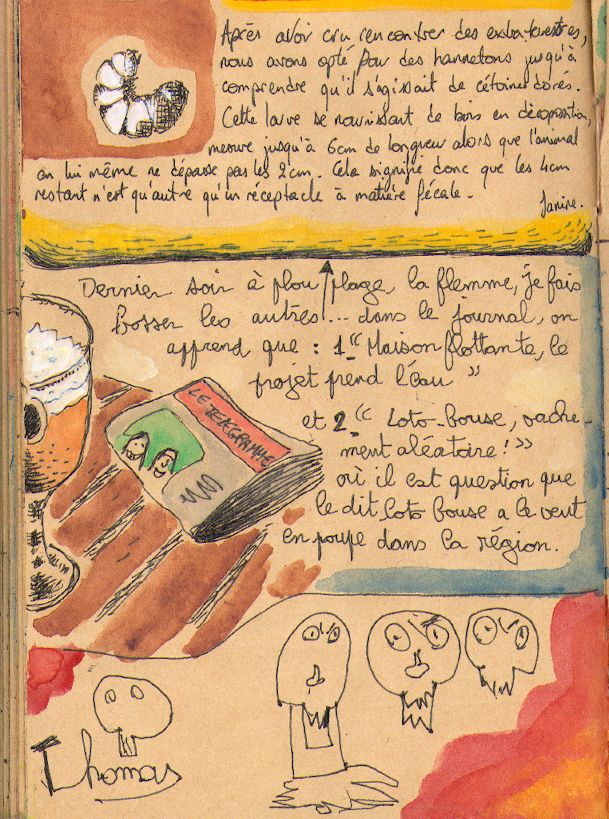 Après avoir cru rencontrer des extra-terrestres,
nous avons opté pour des hannetons jusqu'à
comprendre qu'il s'agissait de cétoines dorés.
Cette larve se nourrissant de bois en décomposition,
mesure jusqu'à 6cm de longueur alors que l'animal
en lui même ne dépasse pas les 2cm. Cela signifie donc que les 4cm
restant n'est qu'autre qu'un réceptacle à matière fécale.
Janine.
Dernier soir à plou plage, la flemme, je fais
bosser les autres... dans le journal, on
apprend que : 1 "Maison flottante, le
projet prend l'eau"
et 2 "Loto-bouse, vache-
ment aléatoire!"
où il est question que
le dit loto bouse a le vent
en poupe dans la région.
LE TELEGRAMME
Thomas